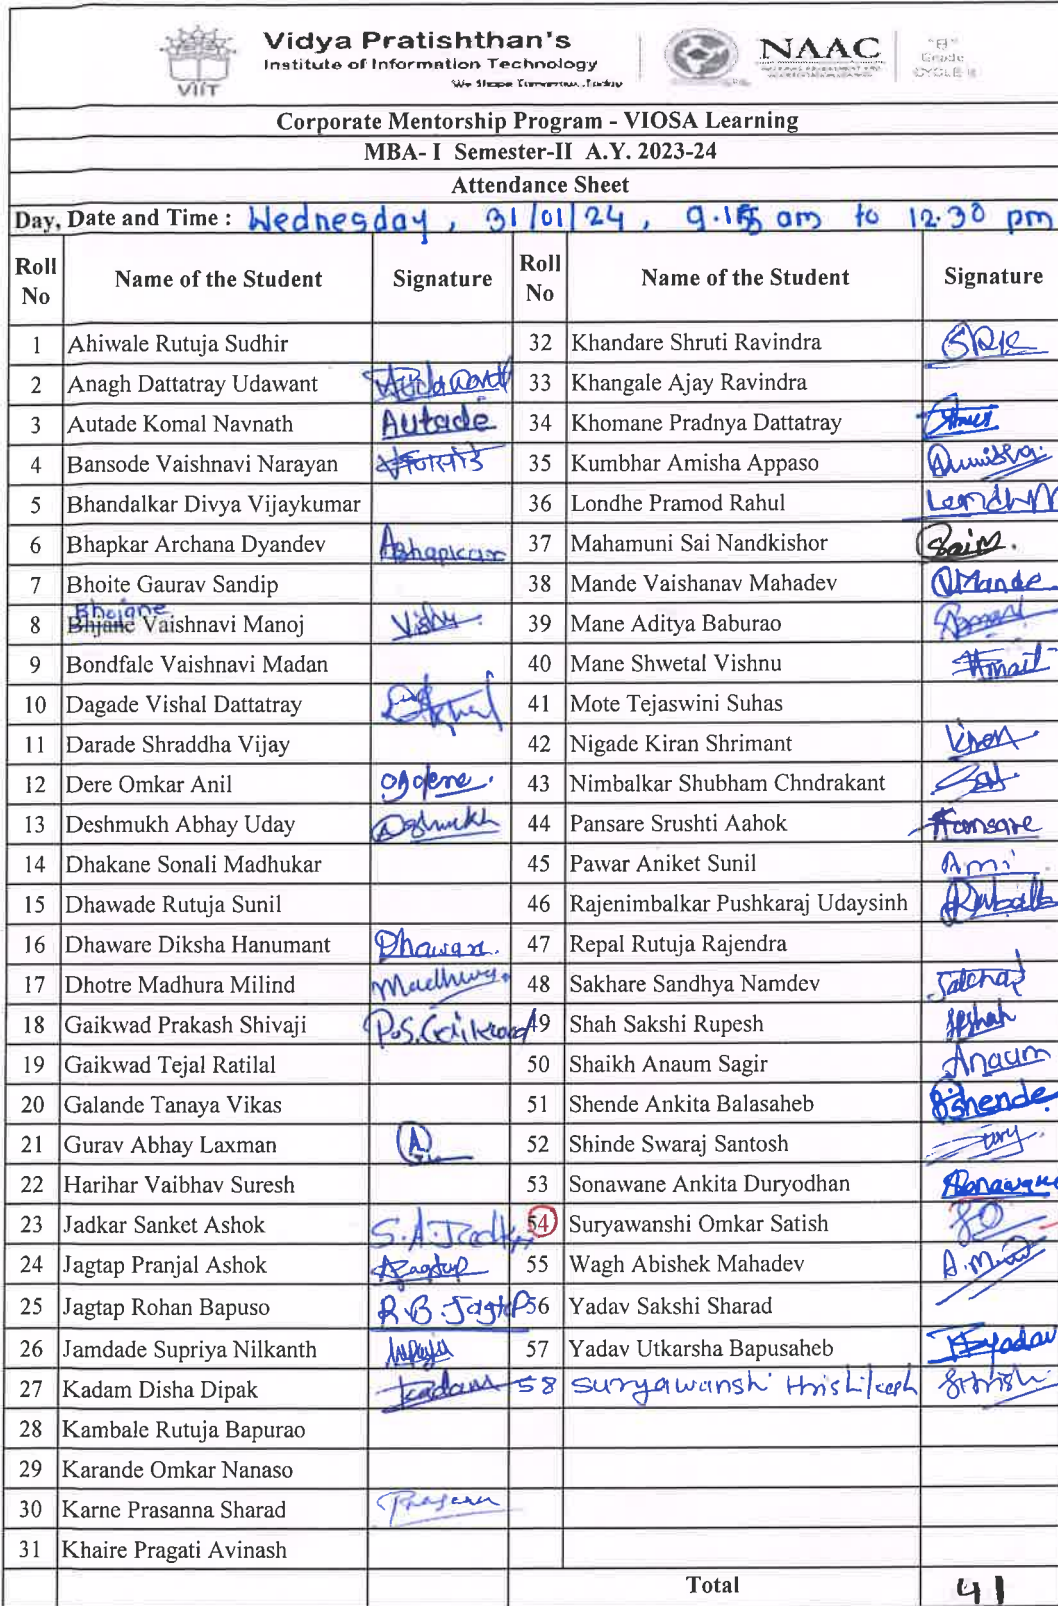 Vidya Pratishthan's
Institute of Information Technology
We Shape Tomorrow..Today
VIIT
NAAC
"B"
Grade
CYCLE II
Corporate Mentorship Program - VIOSA Learning
MBA- I Semester-II A.Y. 2023-24
Attendance Sheet
Day, Date and Time : Wednesday, 31/01/24, 9.15 am to 12.30 pm
Roll No Name of the Student Signature Roll No Name of the Student Signature
1 Ahiwale Rutuja Sudhir 32 Khandare Shruti Ravindra
2 Anagh Dattatray Udawant 33 Khangale Ajay Ravindra
3 Autade Komal Navnath Autade 34 Khomane Pradnya Dattatray
4 Bansode Vaishnavi Narayan 35 Kumbhar Amisha Appaso
5 Bhandalkar Divya Vijaykumar 36 Londhe Pramod Rahul
6 Bhapkar Archana Dyandev 37 Mahamuni Sai Nandkishor
7 Bhoite Gaurav Sandip 38 Mande Vaishanav Mahadev
8 Bhjane Bhojane Vaishnavi Manoj 39 Mane Aditya Baburao
9 Bondfale Vaishnavi Madan 40 Mane Shwetal Vishnu
10 Dagade Vishal Dattatray 41 Mote Tejaswini Suhas
11 Darade Shraddha Vijay 42 Nigade Kiran Shrimant
12 Dere Omkar Anil 43 Nimbalkar Shubham Chndrakant
13 Deshmukh Abhay Uday 44 Pansare Srushti Aahok
14 Dhakane Sonali Madhukar 45 Pawar Aniket Sunil
15 Dhawade Rutuja Sunil 46 Rajenimbalkar Pushkaraj Udaysinh
16 Dhaware Diksha Hanumant 47 Repal Rutuja Rajendra
17 Dhotre Madhura Milind 48 Sakhare Sandhya Namdev
18 Gaikwad Prakash Shivaji P.S.Gaikwad 49 Shah Sakshi Rupesh
19 Gaikwad Tejal Ratilal 50 Shaikh Anaum Sagir Anaum
20 Galande Tanaya Vikas 51 Shende Ankita Balasaheb
21 Gurav Abhay Laxman 52 Shinde Swaraj Santosh
22 Harihar Vaibhav Suresh 53 Sonawane Ankita Duryodhan
23 Jadkar Sanket Ashok 54 Suryawanshi Omkar Satish
24 Jagtap Pranjal Ashok 55 Wagh Abishek Mahadev
25 Jagtap Rohan Bapuso R.B.Jagtap 56 Yadav Sakshi Sharad
26 Jamdade Supriya Nilkanth 57 Yadav Utkarsha Bapusaheb
27 Kadam Disha Dipak Kadam 58 Suryawanshi Hrishikesh
28 Kambale Rutuja Bapurao
29 Karande Omkar Nanaso
30 Karne Prasanna Sharad
31 Khaire Pragati Avinash
Total 41